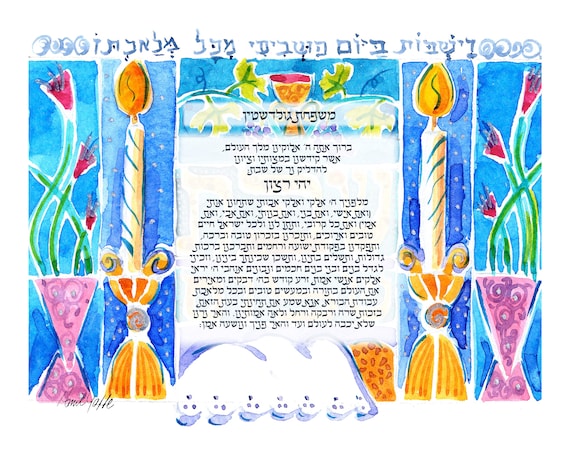 וישבות ביום השביעי מכל מלאכתו
משפחת גולדשטין
ברוך אתה ה׳ אלוקינו מלך העולם,
אשר קידשנו במצותיו וציונו
להדליק נר של שבת:
יהי רצון
מלפניך ה׳ אלקי ואלקי אבותי שתחונן אותי
(ואת אישי, ואת בני, ואת בנותי, ואת אבי, ואת
אמי) ואת כל קרובי, ותתן לנו ולכל ישראל חיים
טובים וארוכים, ותזכרנו בזכרון טובה וברכה,
ותפקדנו בפקודת ישועה ורחמים ותברכנו ברכות
גדולות, ותשלים בתינו, ותשכן שכינתך בינינו, וזכני
לגדל בנים ובני בנים חכמים ונבונים אוהבי ה׳ יראי
אלקים אנשי אמת, זרע קודש בה׳ דבקים ומאירים
את העולם בתורה ובמעשים טובים ובכל מלאכת
עבודת הבורא. אנא שמע את תחינתי בעת הזאת
בזכות שרה ורבקה ורחל ולאה אמותינו, והאר נרנו
שלא יכבה לעולם ועד והאר פניך ונושעה אמן: